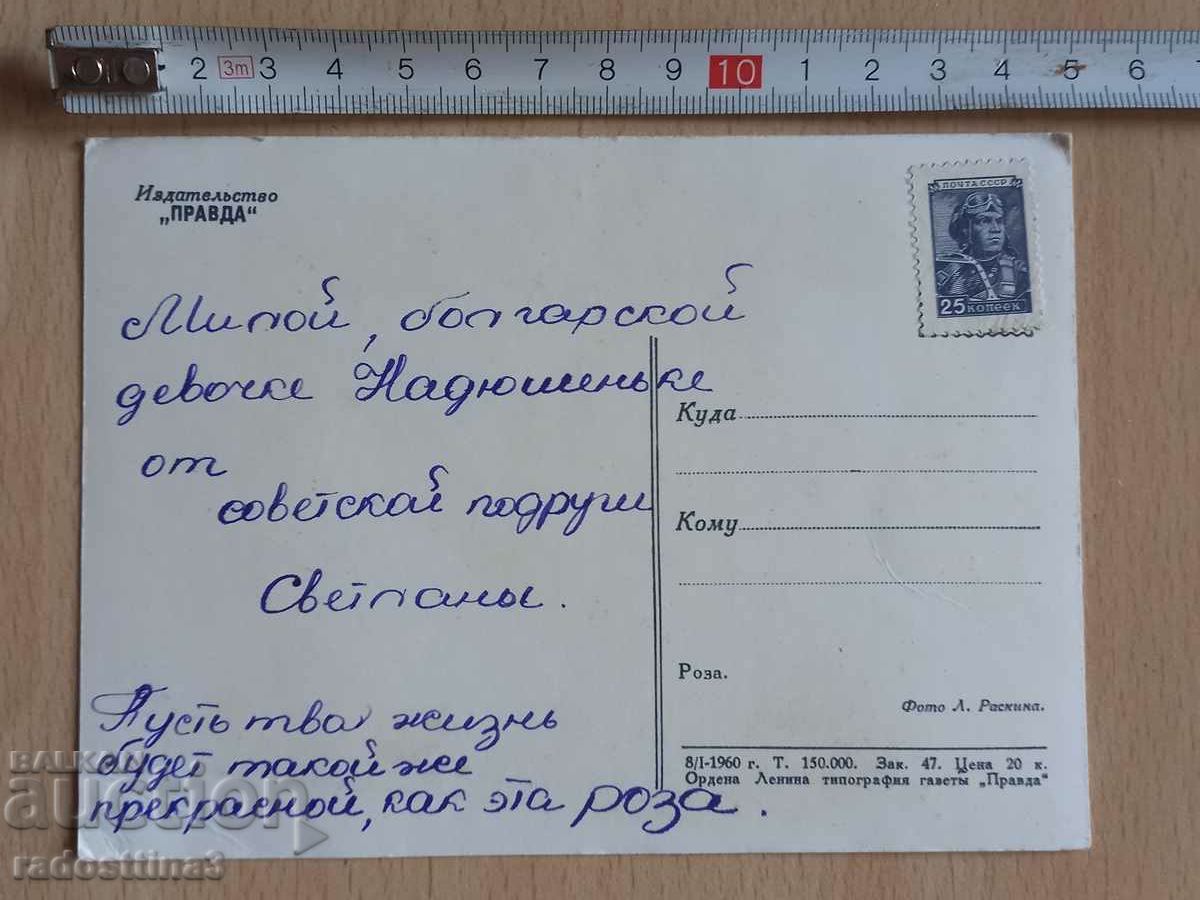 2 3m 3 4 5 6 7 8 9 10 1 2 3 4 5 6
Издательство
„ПРАВДА“
ПОЧТА СССР
25 КОПЕЕК
Милой, болгарской
девочке Надюшеньке
от
советской подруги
Светланы.
Пусть твоя жизнь
будет такой же
прекрасной, как эта роза.
Куда
Кому
Роза.
Фото Л. Раскина.
8/I-1960 г. Т. 150.000. Зак. 47. Цена 20 к.
Ордена Ленина типография газеты „Правда“
BALKAN
auction
radosttina3